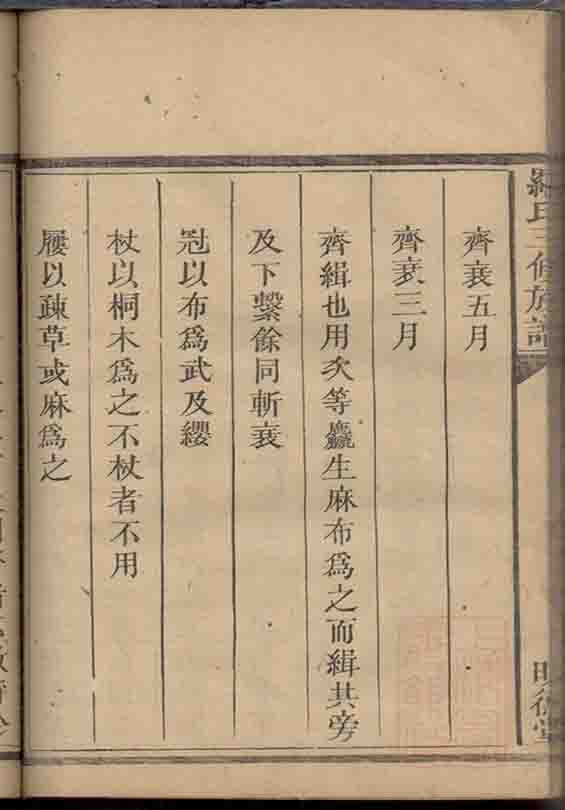 氏三修族譜
齊衰五月
齊衰三月
齊緝也用次等麤生麻布爲之而緝其旁
及下繫餘同斬衰
冠以布爲武及纓
杖以桐木爲之不杖者不用
屨以疎草或麻爲之